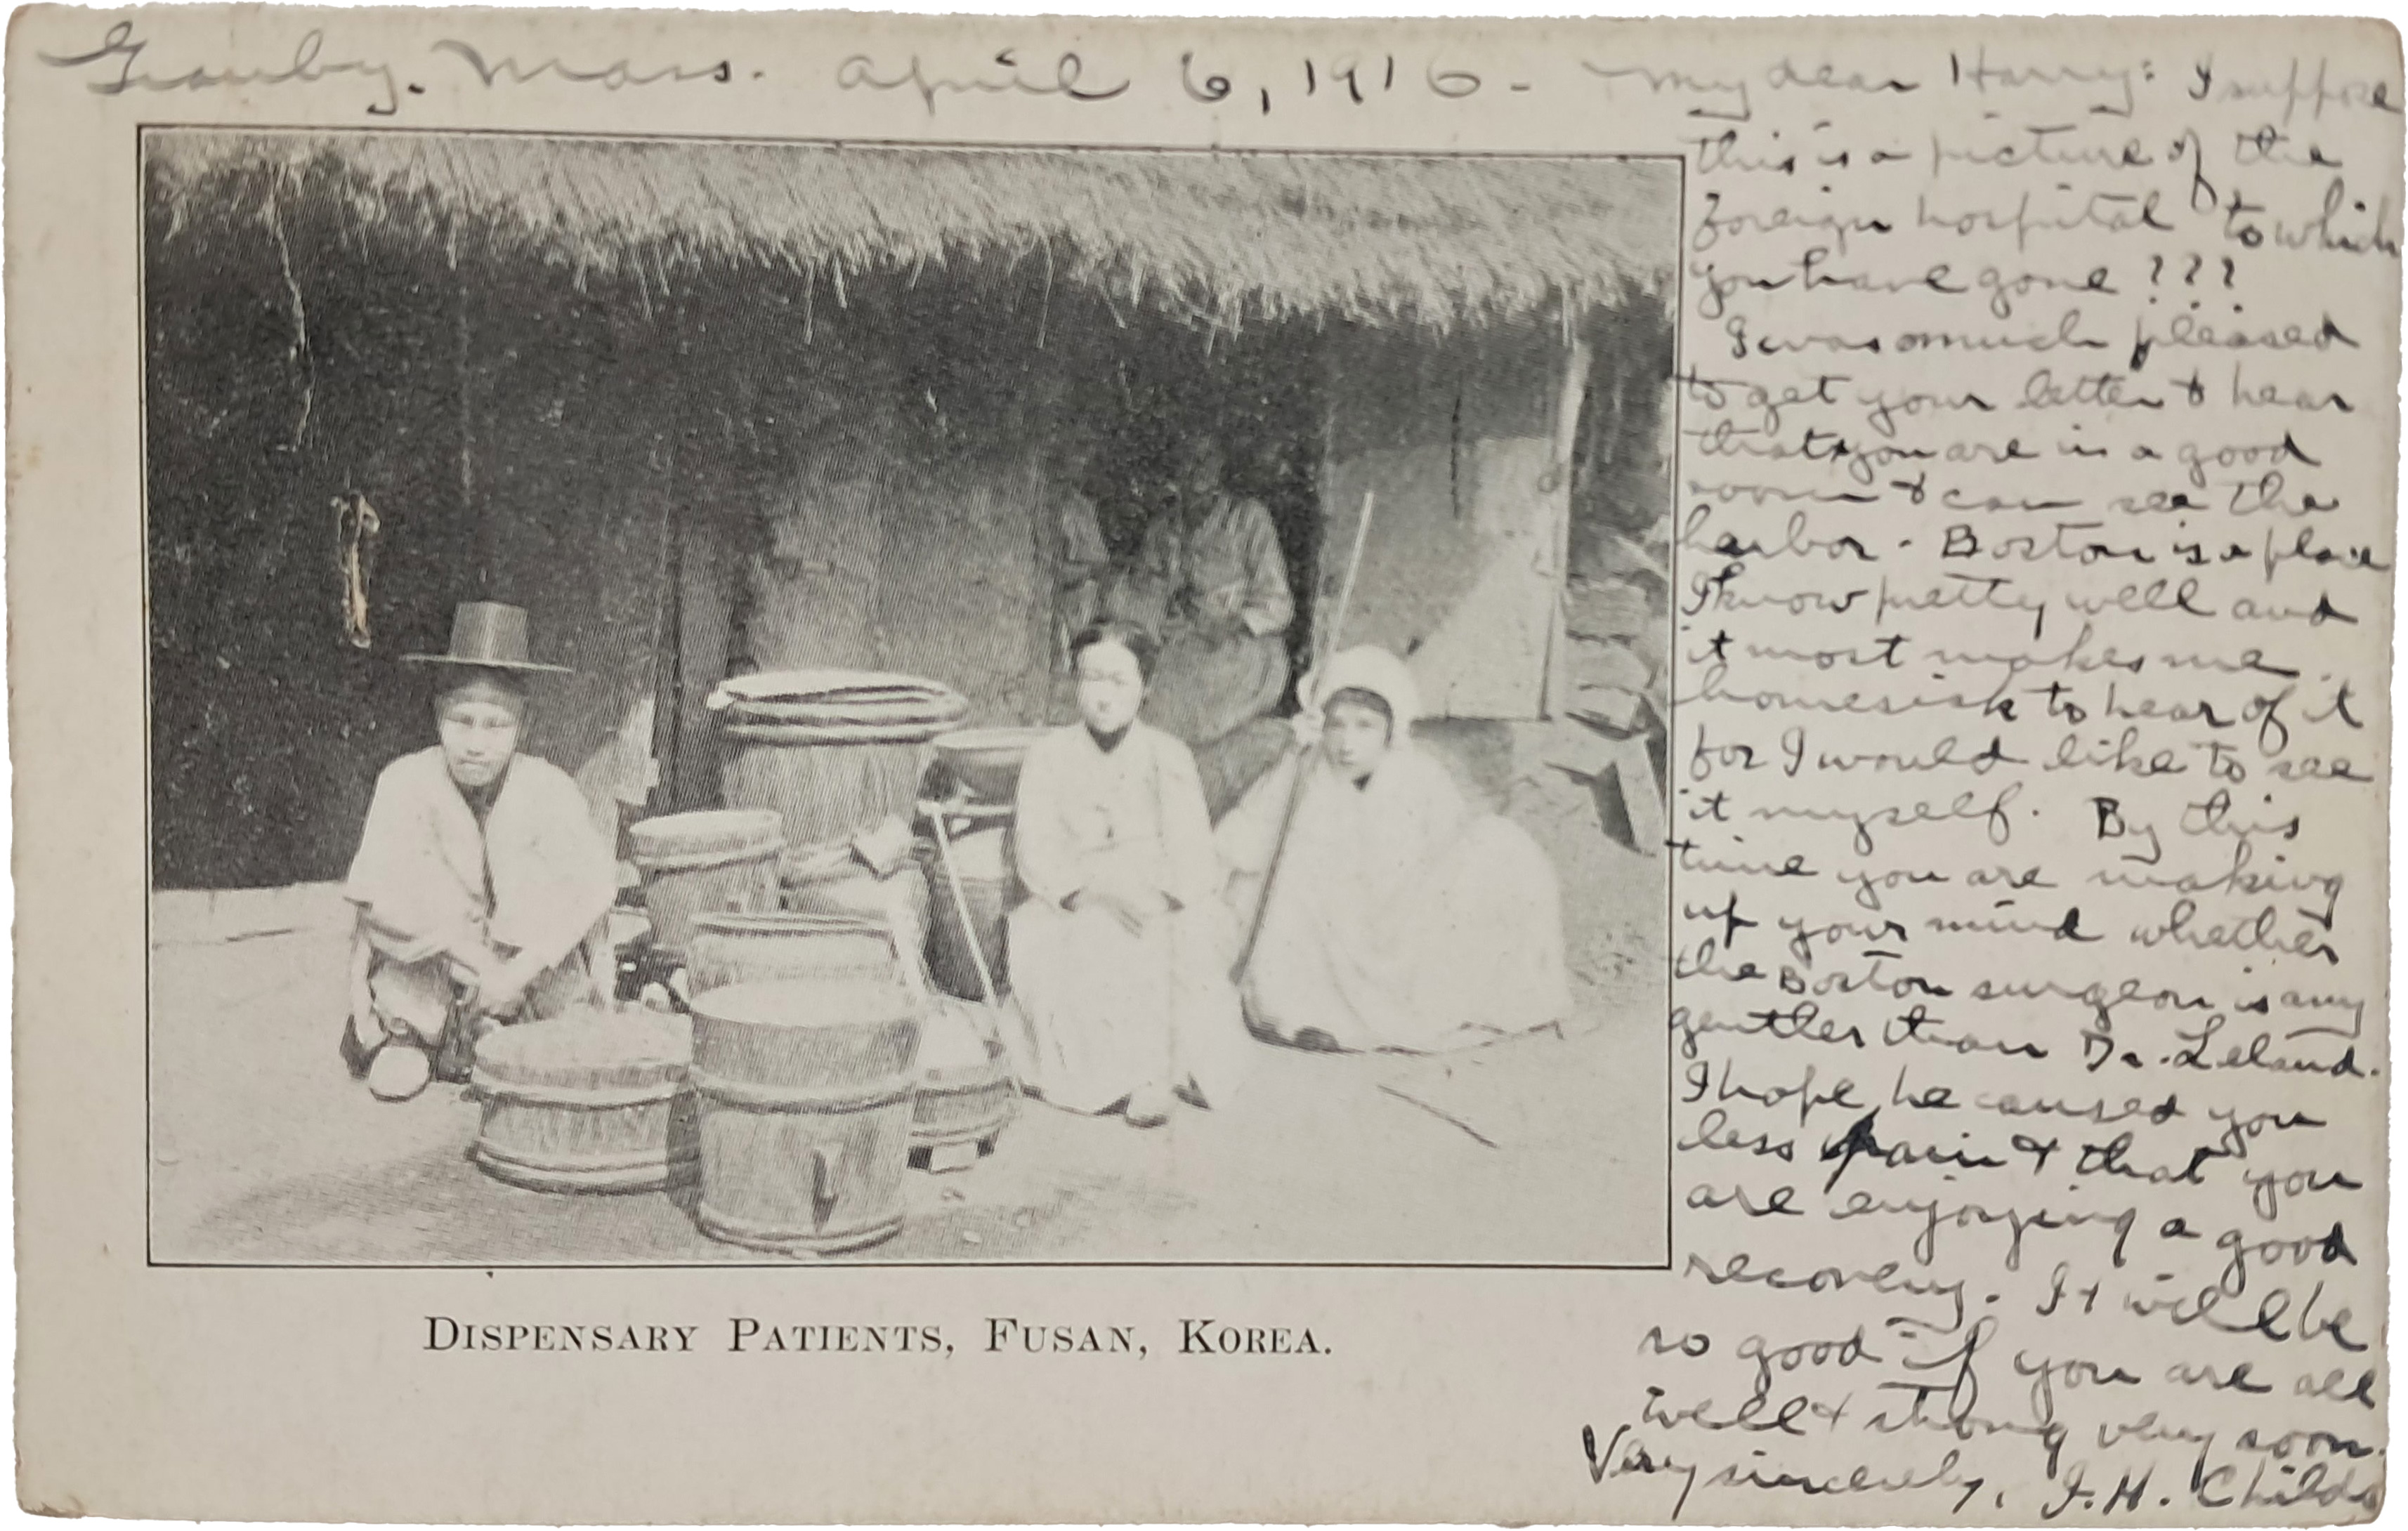 Granby, Mass. April 6, 1910 - My dear Harry: I suppose
this is a picture of the
foreign hospital to which
you have gone ???
I was so much pleased
to get your letter & hear
that you are in a good
room & can see the
harbor - Boston is a place
I know pretty well and
it most makes me
homesick to hear of it
for I would like to see
it myself. By this
time you are making
up your mind whether
the Boston surgeon is any
gentler than Dr. Leland.
I hope he caused you
less pain & that you
are enjoying a good
recovery. It will be
so good if you are all
well & strong very soon.
Very sincerely, I. H. Childs
DISPENSARY PATIENTS, FUSAN, KOREA.